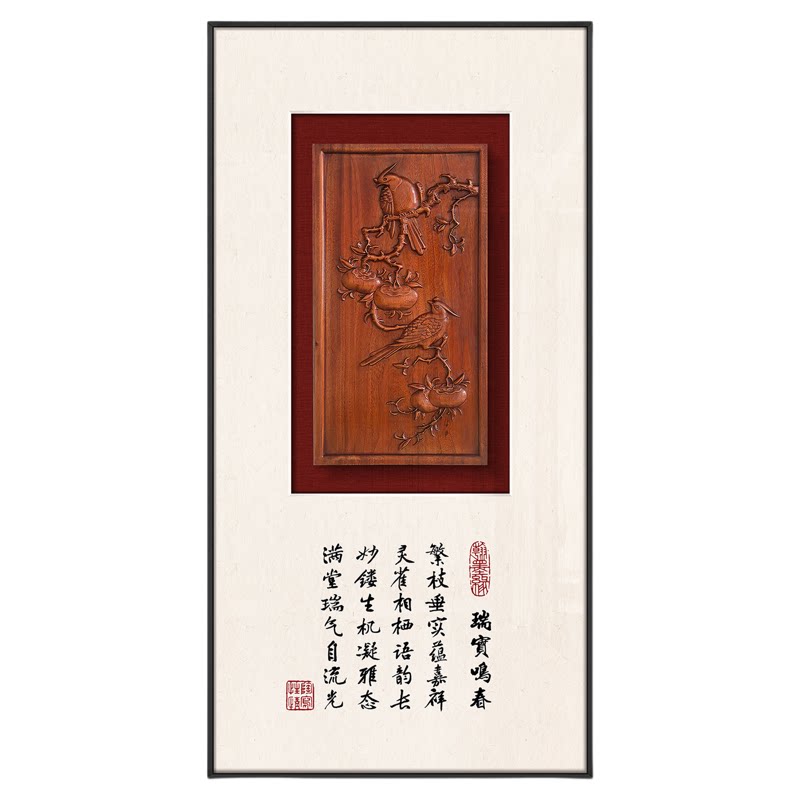 翰墨缘
瑞实鸣春
繁枝垂实蕴嘉祥
灵雀相栖语韵长
妙镂生机凝雅态
满堂瑞气自流光